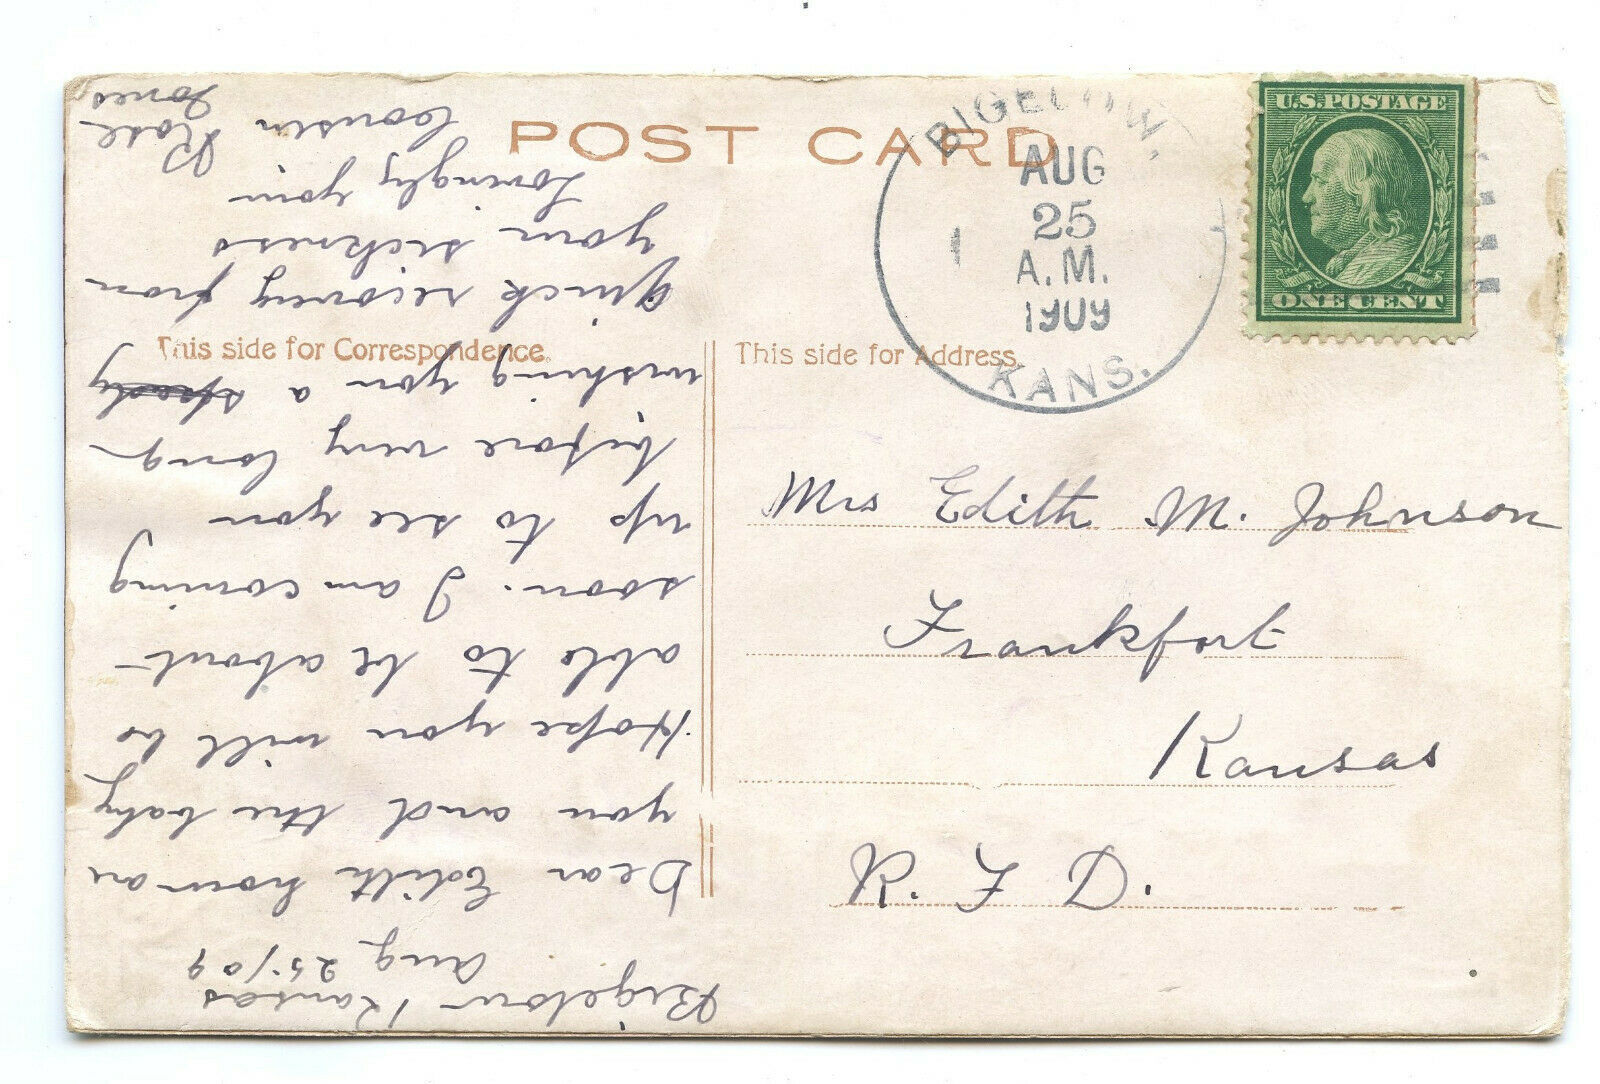 POST CARD
BIGELOW,
AUG
25
A.M.
1909
KANS.
1
U.S. POSTAGE
ONE CENT
This side for Correspondence.
This side for Address.
Mrs Edith M. Johnson
Frankfort
Kansas
R. F. D.
Bigelow Kansas
Aug 25/09
Dear Edith how are
you and the baby
Hope you will be
able to be about
soon. I am coming
up to see you
before very long
wishing you a speedy
Quick recovery from
your sickness
Lovingly your
Cousin Rose
Jones